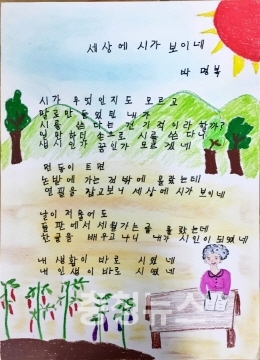 세상에 시가 보이네
박 명복
시가 무엇인지도 모르고
말로만 들었던 내가
시를 쓰 다는 건 기적이라 할까?
일만하던 손으로 시를 쓰 다니
생시인가 꿈인가 모르겠 네
먼 동이 트면
논밭에 가는 것 밖에 몰랐는데
연필을 잡고보니 세상에 시가 보이네
날이 저물어도
들판에서 세월가는 줄 몰랐는데
한글을 배우고 나니 내가 시인이 되었네
내 생활이 바로 시였네
내 인생이 바로 시였네
충청뉴스